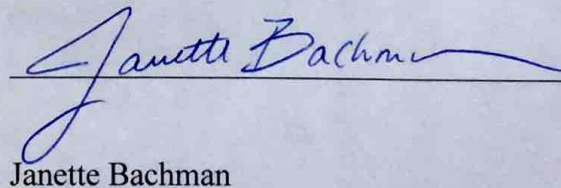 Janette Bachman
Janette Bachman